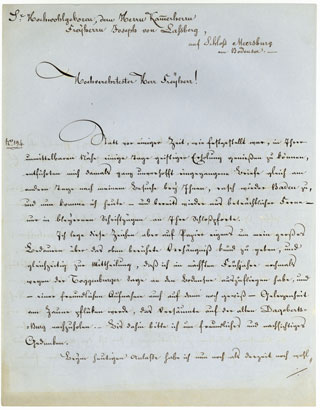 Sr. Hochwohlgeboren, dem Herrn Kammerherrn
Freyherrn Joseph von Laßberg,
auf Schloß Meersburg
am Bodensee.
Hochverehrtester Herr Freyherr!
No 194.
Statt vor einiger Zeit, wie festgestellt war, in Ihrer
unmittelbaren Nähe einige Tage geistiger Erholung genießen zu können,
entführten mich damals ganz unverhofft eingegangene Briefe gleich am
andern Tage nach meinem Besuche bey Ihnen, rasch wieder Baden zu,
und nun komme ich heute – und bereits wieder aus beträchtlicher Ferne –
nur in Schriftzügen an Ihre Schloßpforte.
Ich lege diese Zeilen aber auf Papier eignes um mein großes
Bedauern über das oben berührte Verhängniß kund zu geben, und
gleichzeitig zur Mittheilung, daß ich im nächsten Frühjahre nochmals
wegen der Toggenburger Berge an den Bodensee auszufliegen habe, und
an einer freundlichen Aufnahme auch auf dann noch gewiß Gelegenheit
am Zaune pflücken werde, das Versäumte auf der alten Dagoberts-
Burg nachzuholen. – Bis dahin bitte ich um freundliches und nachsichtiges
Gedenken.
Beym heutigen Anlaße habe ich nun noch als derzeit noch